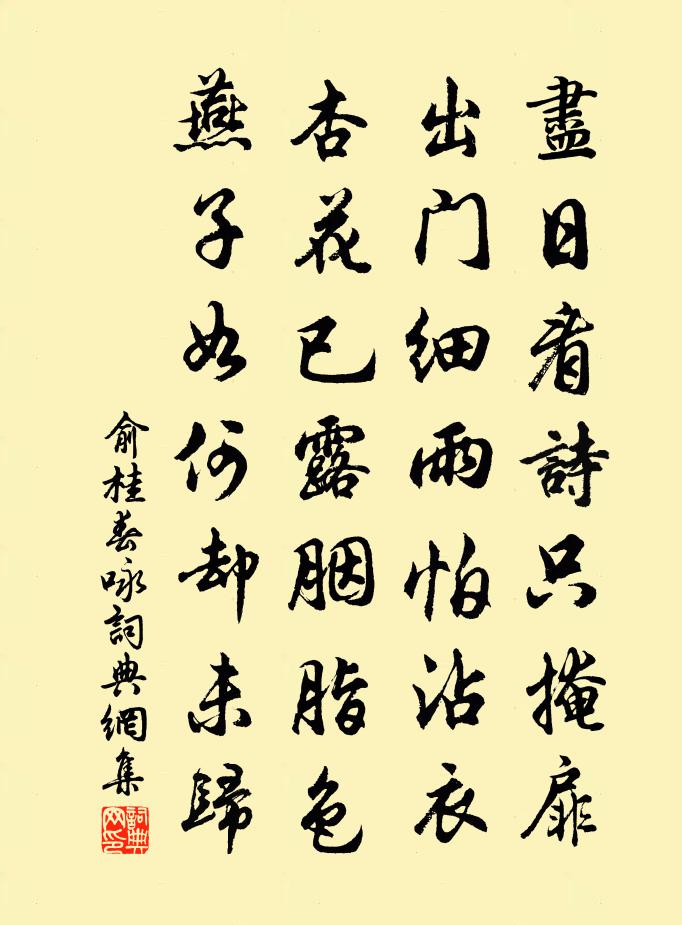 盡日看詩只掩扉
出门细雨怕沾衣
杏花已露胭脂色
燕子如何却未歸
俞桂春咏詞典網集
詞典网印